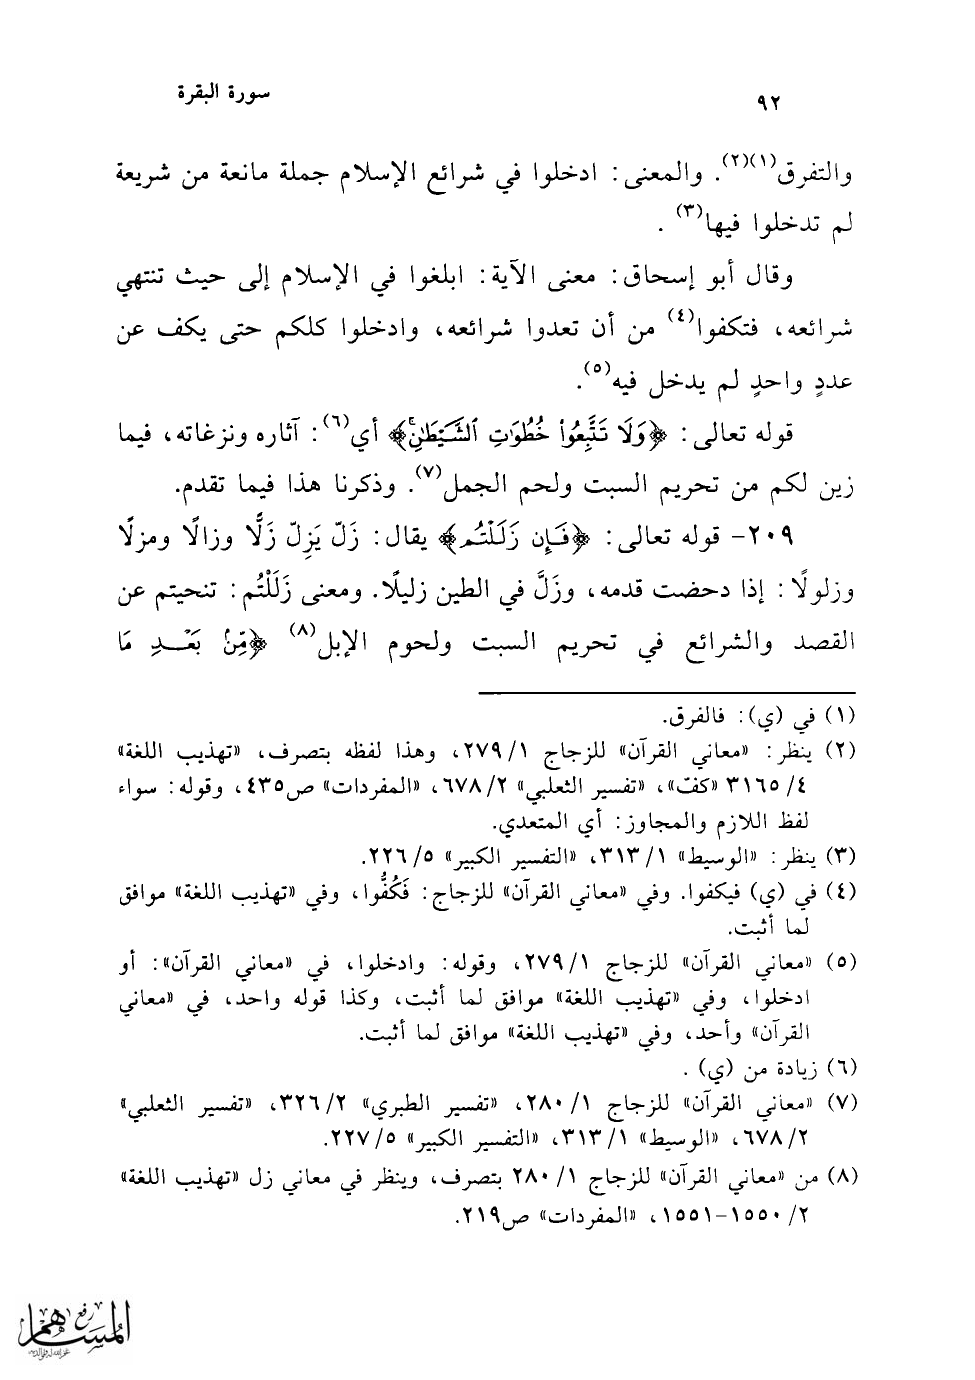 ٩٢
سورة البقرة
والتفرق(١)(٢). والمعنى: ادخلوا في شرائع الإسلام جملة مانعة من شريعة
لم تدخلوا فيها(٣) .
وقال أبو إسحاق: معنى الآية: ابلغوا في الإسلام إلى حيث تنتهي
شرائعه، فتكفوا(٤) من أن تعدوا شرائعه، وادخلوا كلكم حتى يكف عن
عددٍ واحدٍ لم يدخل فيه(٥).
قوله تعالى: ﴿وَلَا تَتَّبِعُوا۟ خُطُوَٰتِ ٱلشَّيْطَٰنِۚ﴾ أي(٦): آثاره ونزغاته، فيما
زين لكم من تحريم السبت ولحم الجمل(٧). وذكرنا هذا فيما تقدم.
٢٠٩- قوله تعالى: ﴿فَإِن زَلَلْتُم﴾ يقال: زَلّ يَزِلّ زَلًّا وزالًا ومزلًا
وزلولًا: إذا دحضت قدمه، وزَلَّ في الطين زليلًا. ومعنى زَلَلْتُم: تنحيتم عن
القصد والشرائع في تحريم السبت ولحوم الإبل(٨) ﴿مِّنۢ بَعْدِ مَا
(١) في (ي): فالفرق.
(٢) ينظر: «معاني القرآن» للزجاج ١/ ٢٧٩، وهذا لفظه بتصرف، «تهذيب اللغة»
٤/ ٣١٦٥ «كفّ»، «تفسير الثعلبي» ٢/ ٦٧٨، «المفردات» ص٤٣٥، وقوله: سواء
لفظ اللازم والمجاوز: أي المتعدي.
(٣) ينظر: «الوسيط» ١/ ٣١٣، «التفسير الكبير» ٥/ ٢٢٦.
(٤) في (ي) فيكفوا. وفي «معاني القرآن» للزجاج: فَكُفُّوا، وفي «تهذيب اللغة» موافق
لما أثبت.
(٥) «معاني القرآن» للزجاج ١/ ٢٧٩، وقوله: وادخلوا، في «معاني القرآن»: أو
ادخلوا، وفي «تهذيب اللغة» موافق لما أثبت، وكذا قوله واحد، في «معاني
القرآن» وأحد، وفي «تهذيب اللغة» موافق لما أثبت.
(٦) زيادة من (ي) .
(٧) «معاني القرآن» للزجاج ١/ ٢٨٠، «تفسير الطبري» ٢/ ٣٢٦، «تفسير الثعلبي»
٢/ ٦٧٨، «الوسيط» ١/ ٣١٣، «التفسير الكبير» ٥/ ٢٢٧.
(٨) من «معاني القرآن» للزجاج ١/ ٢٨٠ بتصرف، وينظر في معاني زل «تهذيب اللغة»
٢/ ١٥٥٠-١٥٥١، «المفردات» ص٢١٩.